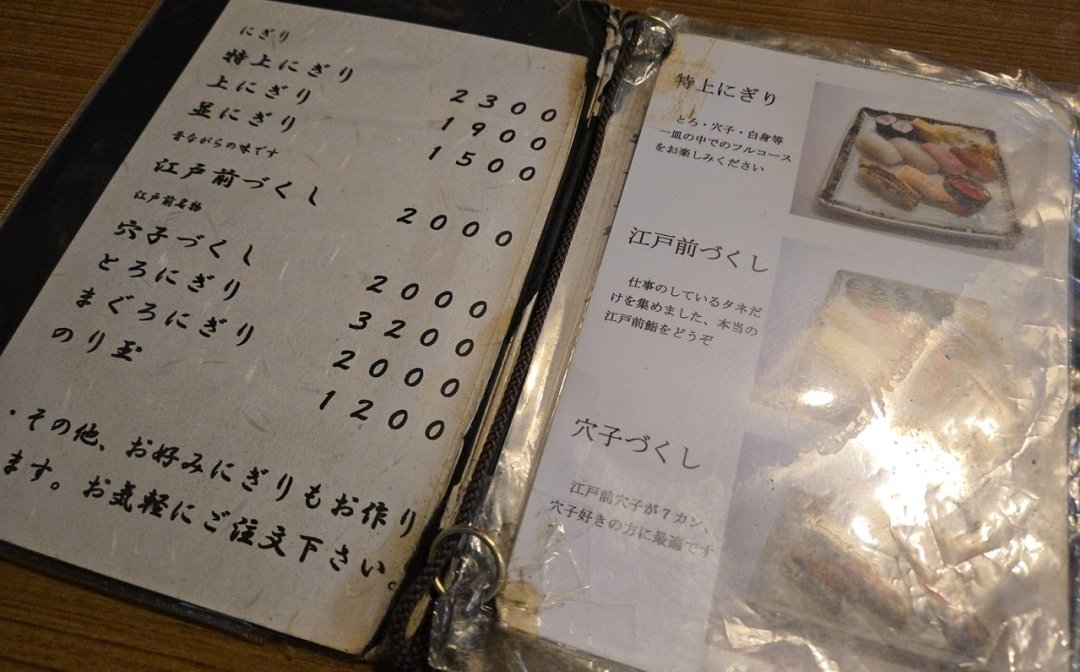 にぎり
特上にぎり 2300
上にぎり 1900
並にぎり 1500
昔ながらの味です
江戸前づくし 2000
江戸前名物
穴子づくし 2000
とろにぎり 3200
まぐろにぎり 2000
のり玉 1200
・その他、お好みにぎりもお作り
ます。お気軽にご注文下さい。
特上にぎり
とろ・穴子・白身等
一皿の中でのフルコース
をお楽しみください
江戸前づくし
仕事のしているタネだ
けを集めました、本当の
江戸前鮨をどうぞ
穴子づくし
江戸前穴子が7カン、
穴子好きの方に最適です